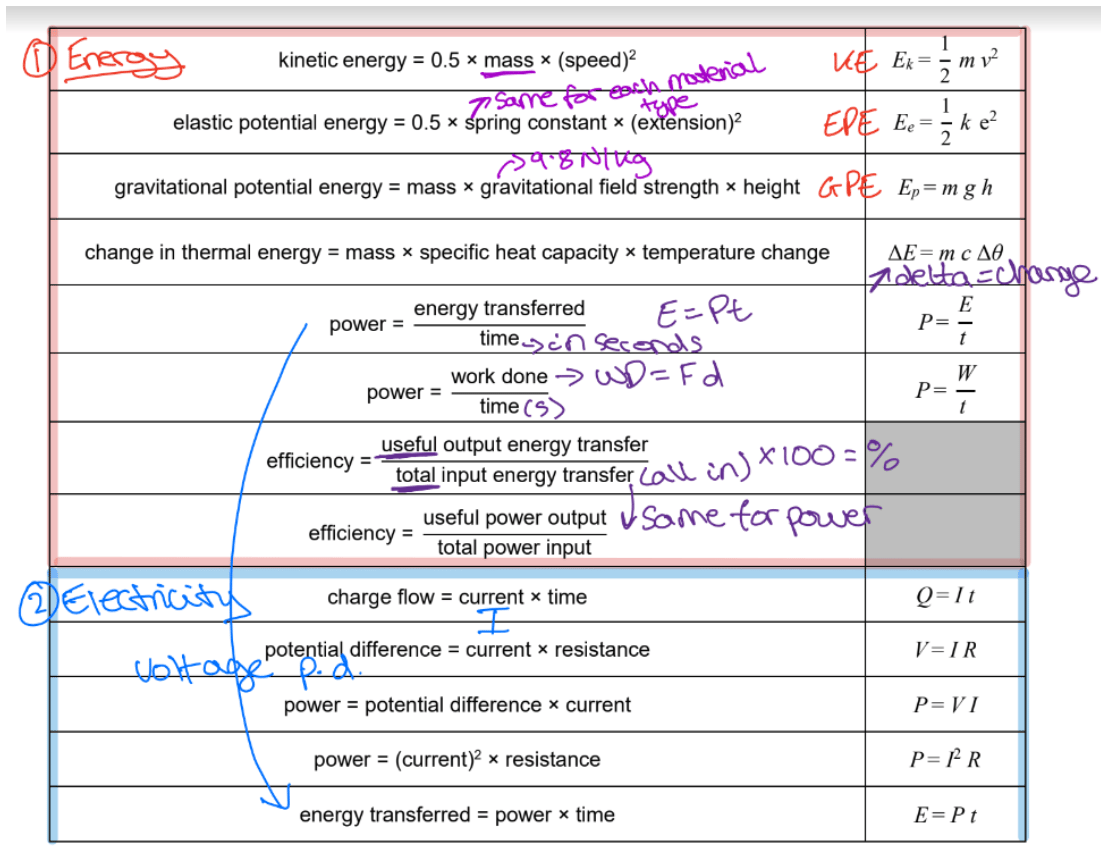 ① Energy
kinetic energy = 0.5 × mass × (speed)² KE Eₖ = 1/2 m v²
↗ same for each material type
elastic potential energy = 0.5 × spring constant × (extension)² EPE Eₑ = 1/2 k e²
→ 9.8 N/kg
gravitational potential energy = mass × gravitational field strength × height GPE Eₚ = m g h
change in thermal energy = mass × specific heat capacity × temperature change ΔE = m c Δθ
↗ delta = change
power = energy transferred / time → in seconds E = Pt P = E / t
power = work done / time (s) → WD = Fd P = W / t
efficiency = useful output energy transfer / total input energy transfer (all in) × 100 = %
↓ same for power
efficiency = useful power output / total power input
② Electricity
charge flow = current × time Q = I t
I
potential difference = current × resistance V = I R
voltage p.d.
power = potential difference × current P = V I
power = (current)² × resistance P = I² R
energy transferred = power × time E = P t